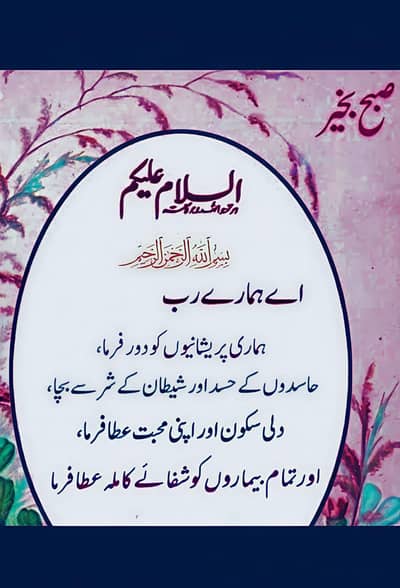 صبح بخیر
السلام علیکم
ورحمۃ اللہ وبرکاتہ
بسم اللہ الرحمن الرحیم
اے ہمارے رب
ہماری پریشانیوں کو دور فرما،
حاسدوں کے حسد اور شیطان کے شر سے بچا،
دلی سکون اور اپنی محبت عطا فرما،
اور تمام بیماروں کو شفائے کاملہ عطا فرما